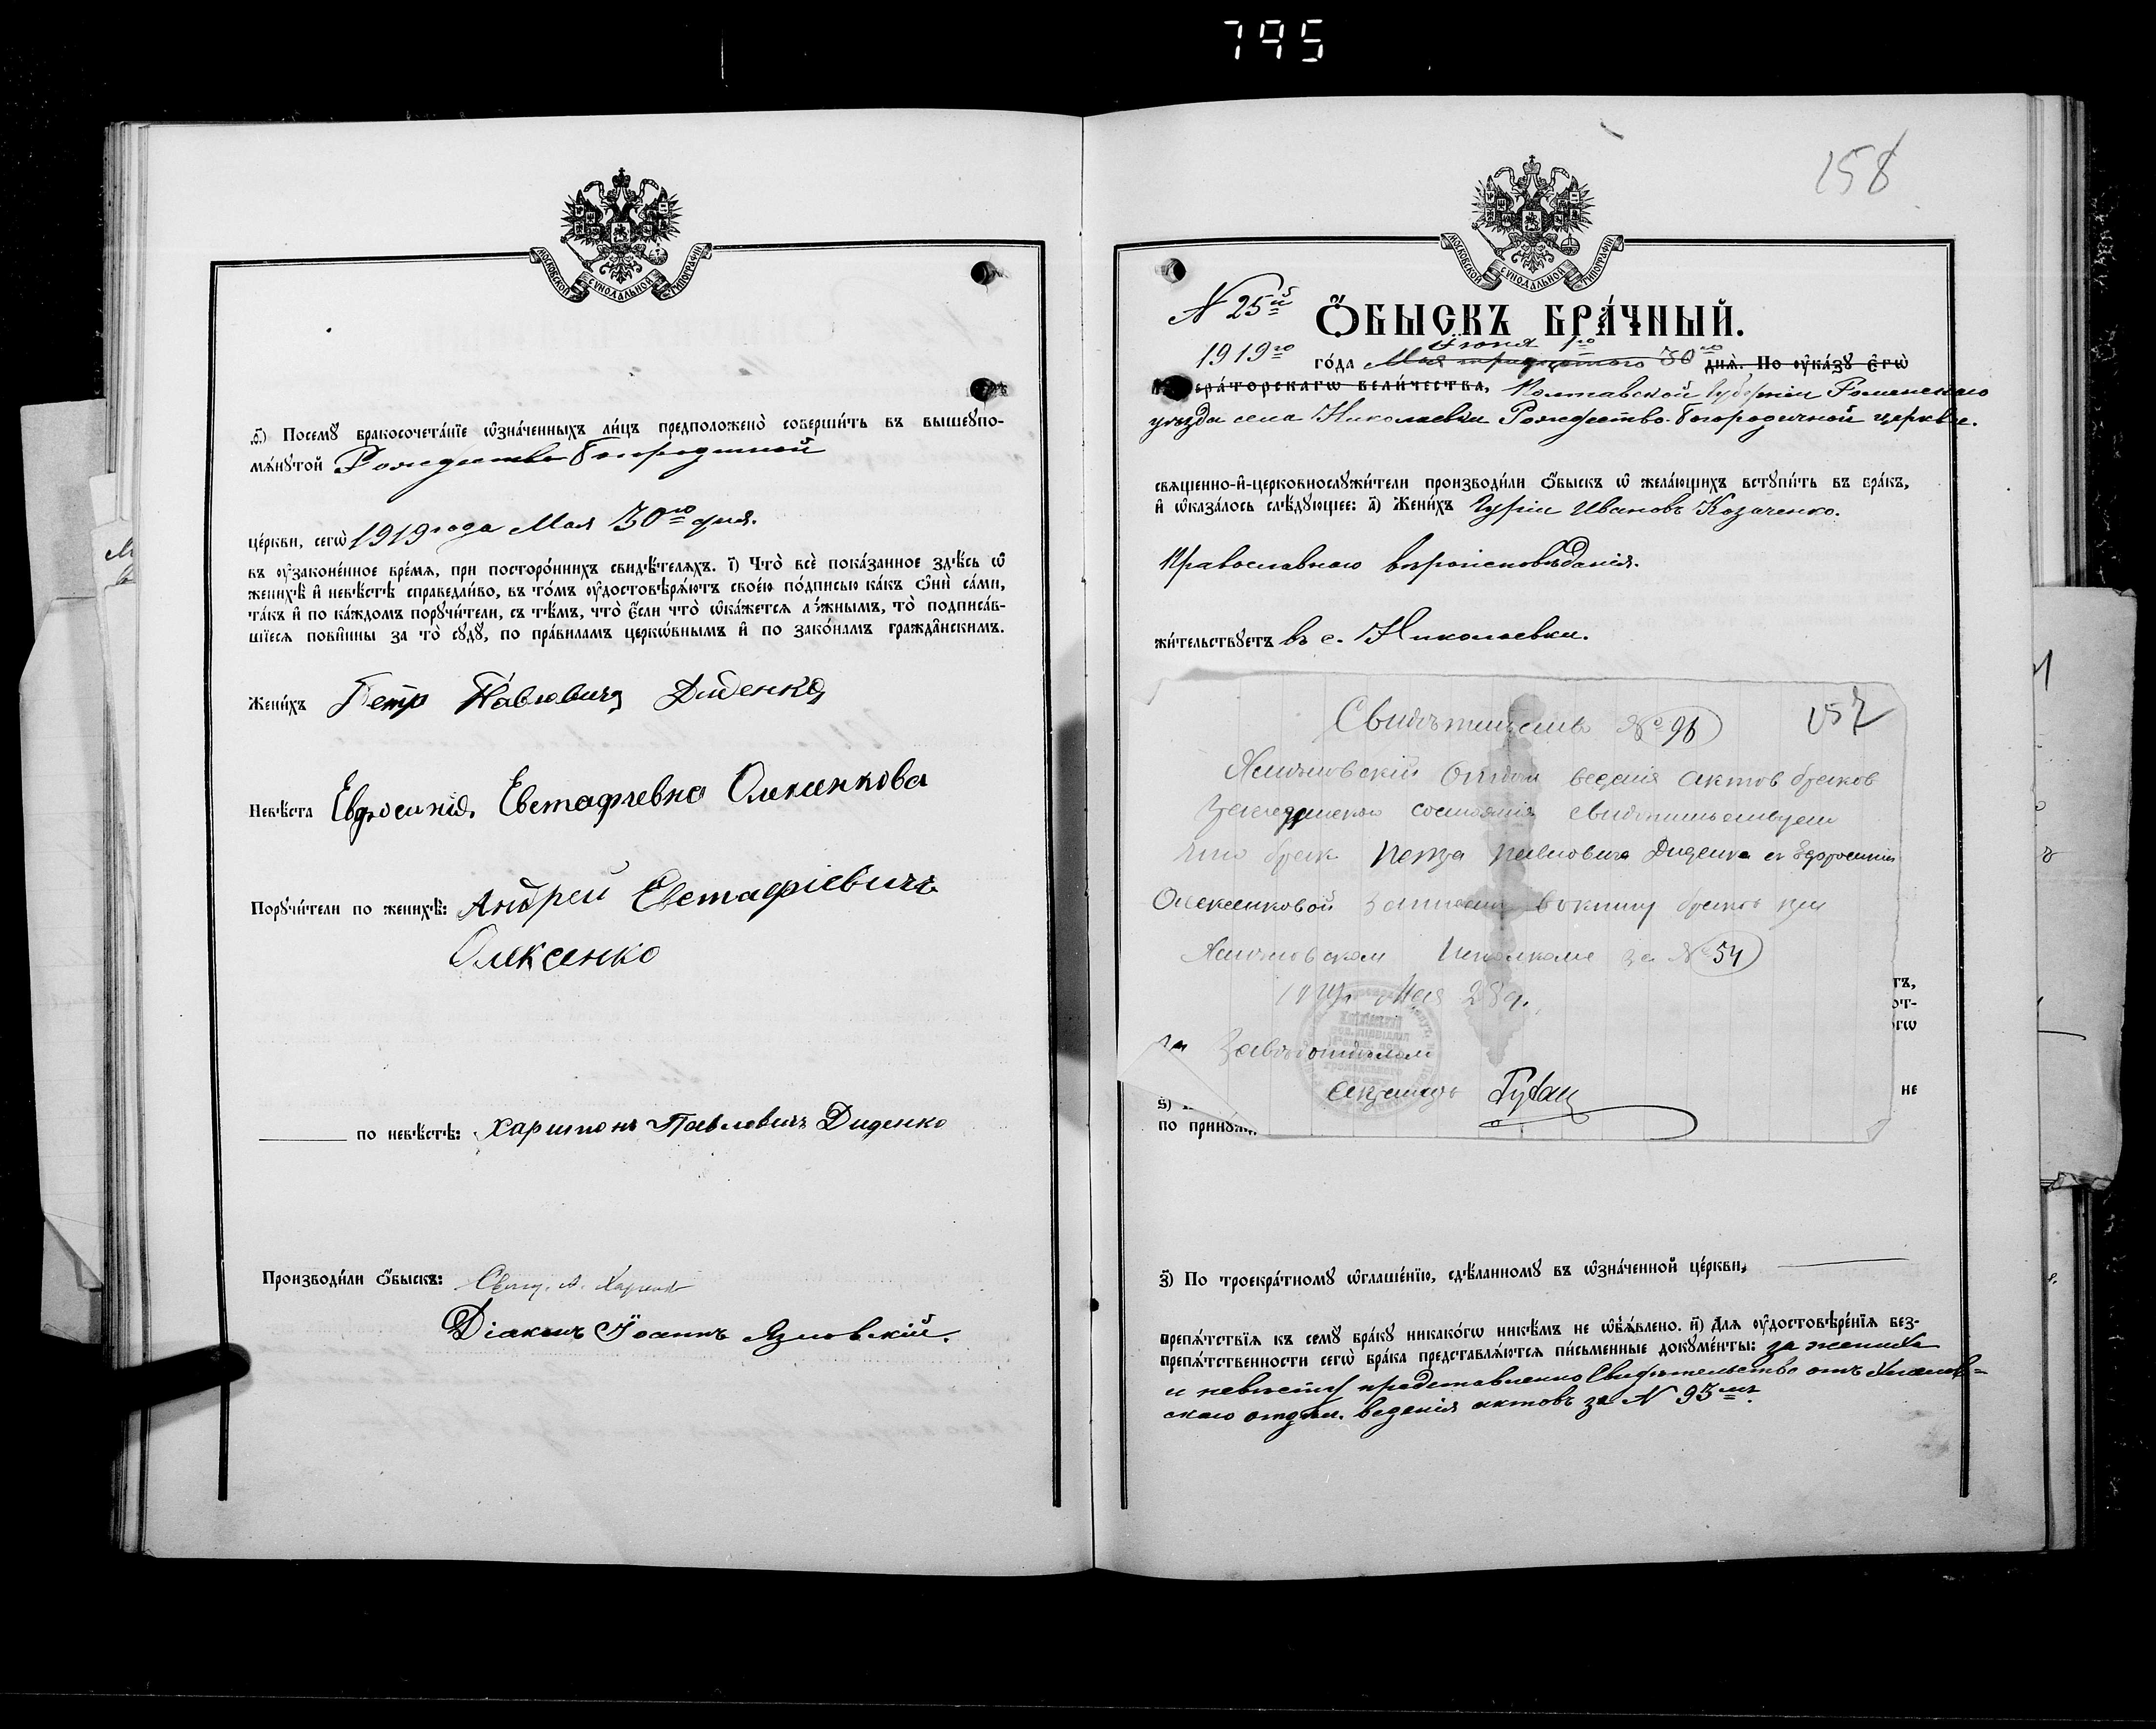 795
МОСКОВСКОЙ СУНОДАЛЬНОЙ ТИПОГРАФІИ
Посемꙋ̀ бракосочета́нїе ѡ҆зна́ченныхъ ли́цъ предположено̀ соверши́ть въ вышеꙋпо-
мѧ́нꙋтой Рождество Богородичной
це́ркви, сегѡ̀ 1919 года Мая 30го дня.
въ ᲂу҆зако́ненное вре́мѧ, при посторо́ннихъ свидѣ́телѧхъ. і҃) Что̀ всѐ пока́занное здѣ́сь ѡ҆
женихѣ̀ и҆ невѣ́стѣ справедли́во, въ то́мъ ᲂу҆достовѣрѧ́ютъ свое́ю по́дписью ка́къ ѻ҆нѝ са́ми,
та́къ и҆ по ка́ждомъ порꙋчи́тели, съ тѣ́мъ, что̀ є҆́сли что̀ ѡ҆ка́жетсѧ ло́жнымъ, то̀ подписа́в-
шїесѧ пови́нны за то̀ сꙋдꙋ̀, по пра́виламъ церко́внымъ и҆ по зако́намъ гражда́нскимъ.
Жени́хъ Петр Павловичъ Диденко
Невѣ́ста Евдросинія Евстафіевна Олексенкова
Порꙋчи́тели по женихѣ̀: Андрей Евстафіевичъ
Олексенко
по невѣ́стѣ: Харитонъ Павловичъ Диденко
Производи́ли ѻ҆́быскъ: Свящ. А.
Діаконъ Іоаннъ Язловскій.
158
МОСКОВСКОЙ СУНОДАЛЬНОЙ ТИПОГРАФІИ
N 25й
Ѻ҆́БЫСКЪ БРА́ЧНЫЙ.
Іюня 1го
1919го го́да Мая тридцатого 30го днѧ̀. По ᲂу҆ка́зꙋ є҆гѡ̀
ера́торскагѡ вели́чества, Полтавской губерніи Роменскаго
уезда села Николаевки Рождество-Богородичной церкви.
свѧще́нно-и҆-церковнослꙋжи́тели производи́ли ѻ҆́быскъ ѡ҆ жела́ющихъ встꙋпи́ть въ бра́къ,
и҆ ѡ҆каза́лось слѣ́дꙋющее: а҃) Жени́хъ Гурій Ивановъ Козаченко.
Православнаго вероисповѣданія.
жи́тельствꙋетъ въ с. Николаевки.
Свидѣтельство № 96 157
Отдѣл веденія актов браков
гражданскаго состоянія свидѣтельствует
что брак Петра Павловича Диденка съ Ефросиніи
Олексенковой записан в книгу браков при
Исполкоме за № 54
1919г. Мая 28 д.
тъ,
от-
огѡ
За Завѣд отделом
Секретарь Губан
не
по принѧ́
з҃) По троекра́тномꙋ ѡ҆глаше́нїю, сдѣ́ланномꙋ въ ѡ҆зна́ченной це́ркви,
препѧ́тствїѧ къ семꙋ̀ бра́кꙋ никако́гѡ никѣ́мъ не ѡ҆б̾ѧ́влено. и҃) Длѧ ᲂу҆достовѣре́нїѧ без-
препѧ́тственности сегѡ̀ бра́ка представлѧ́ютсѧ пи́сьменные докꙋме́нты: за жениха
и невесту представленно Свидѣтельство отъ
скаго отдѣл. веденія актовъ за N 93мъ.